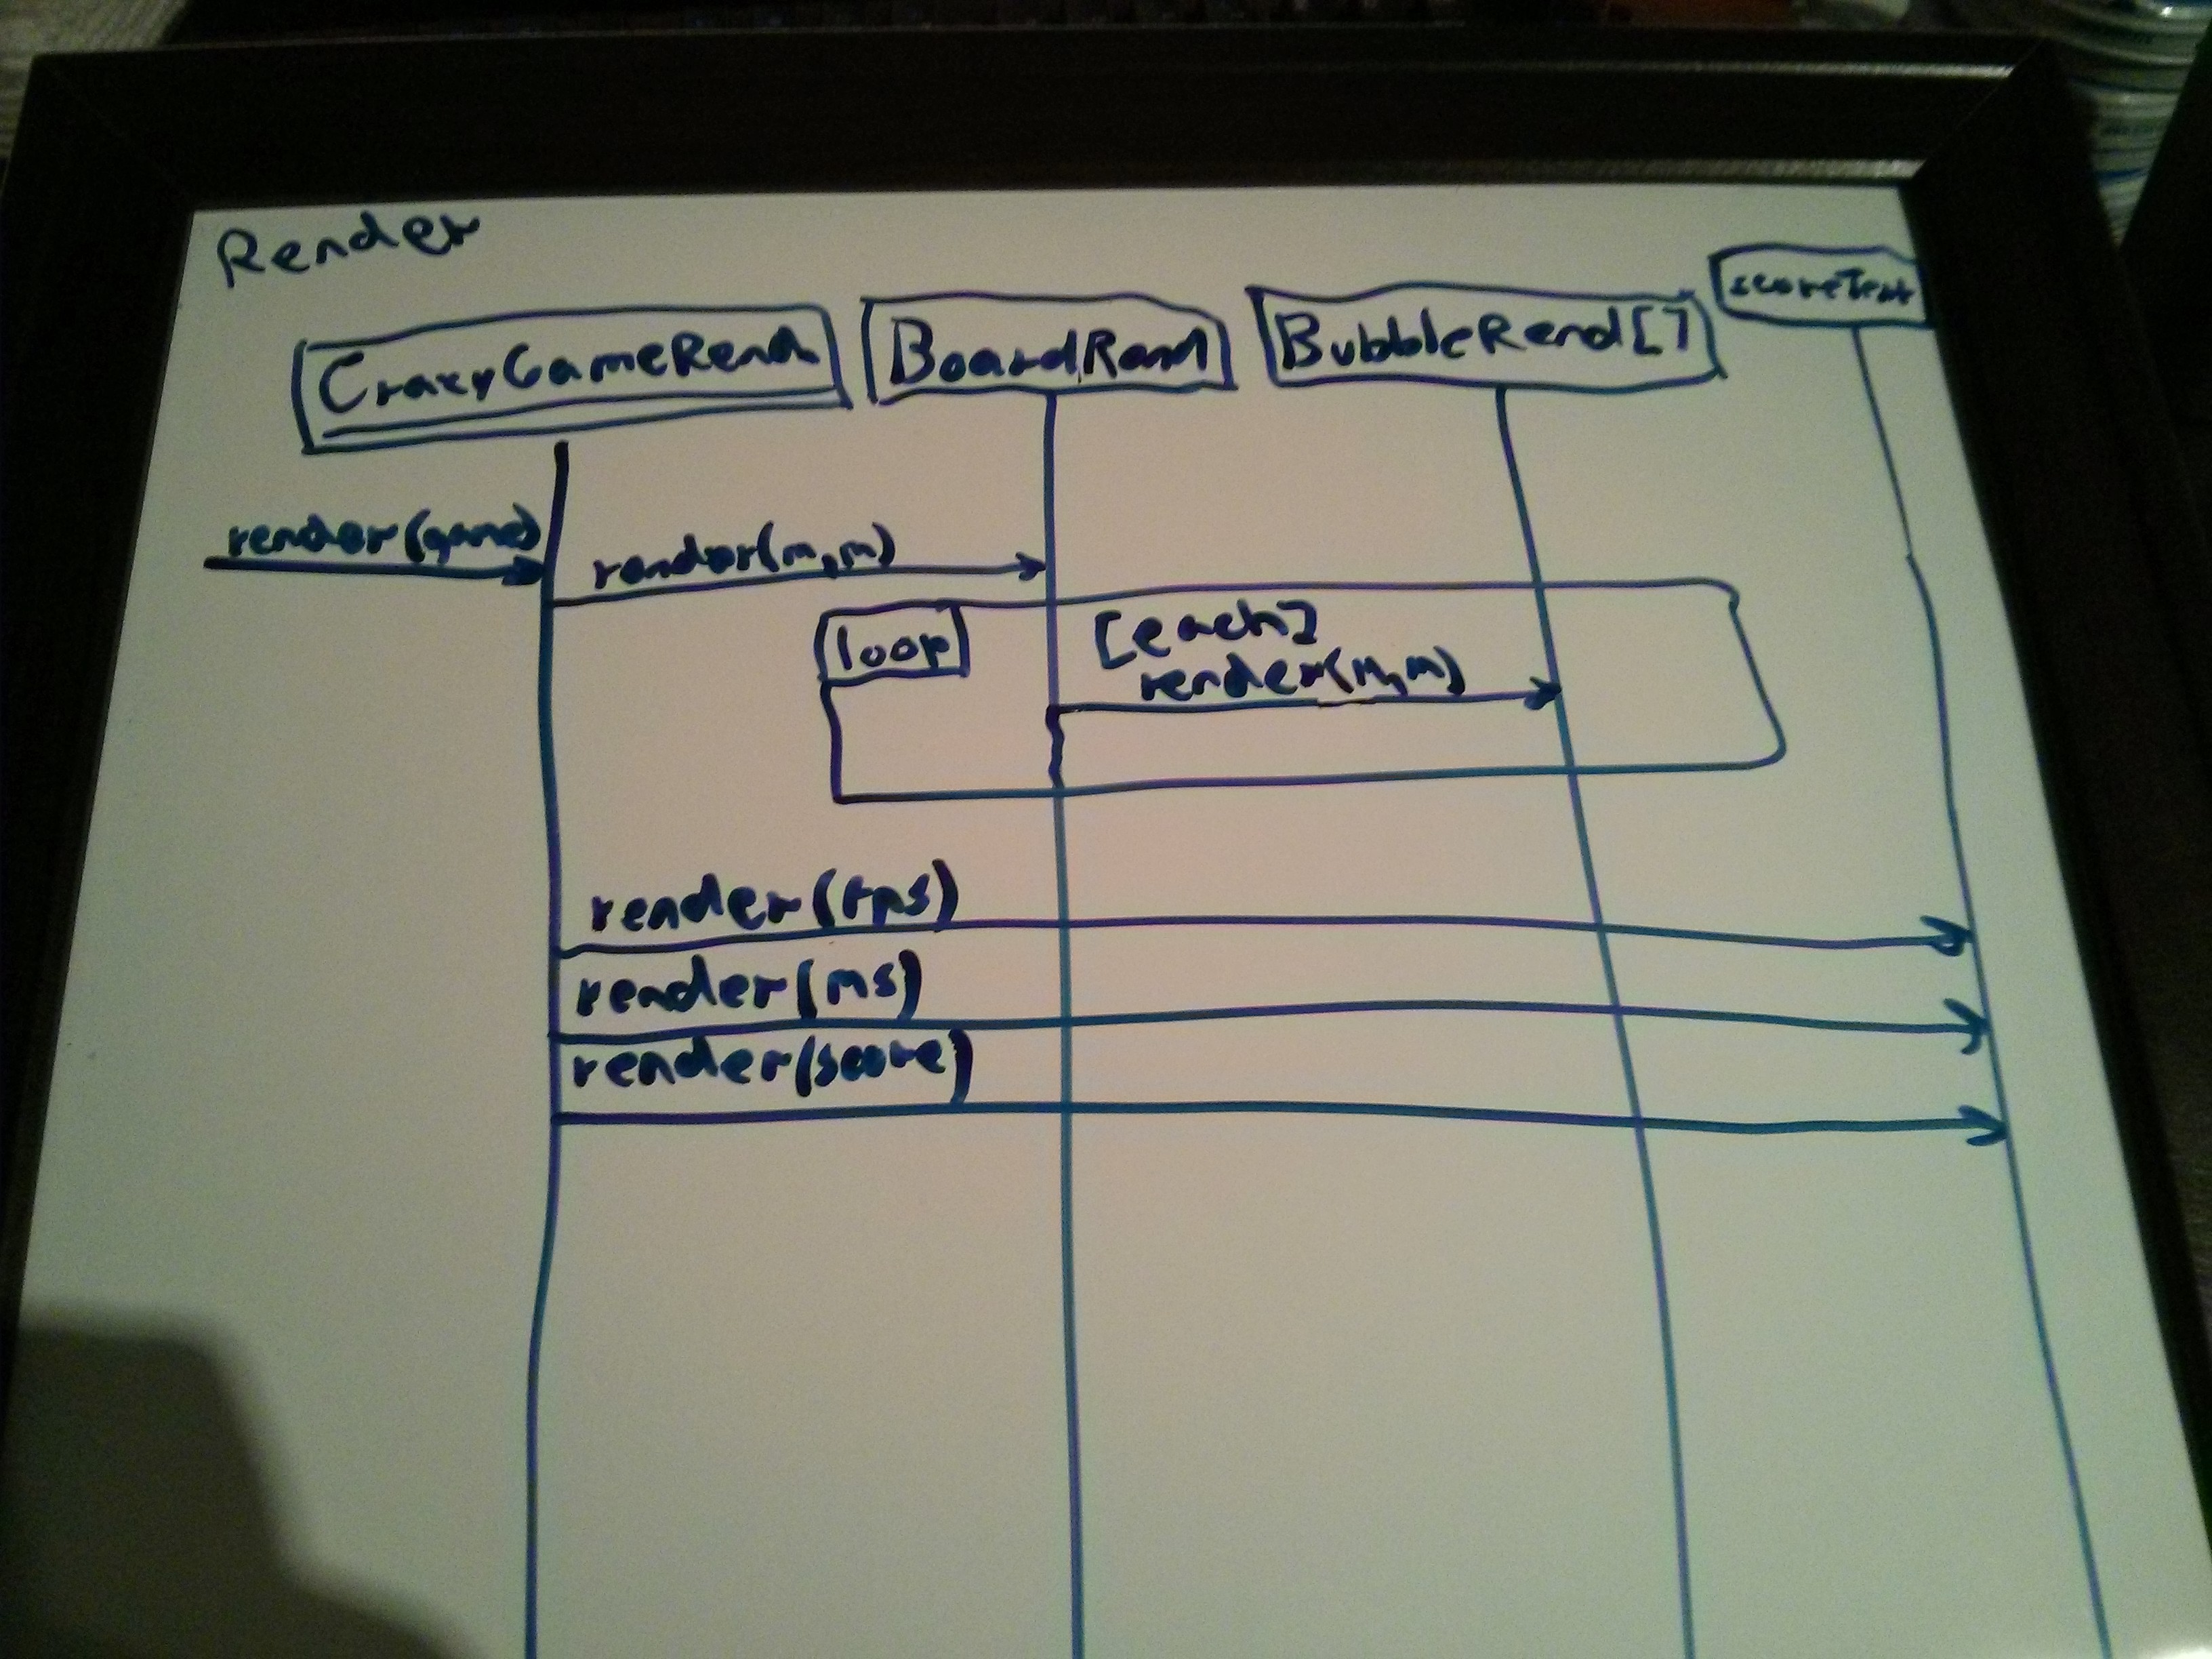 Render
CrazyGameRend
BoardRend
BubbleRend[]
scoreText
render(game)
render(m,m)
loop
[each]
render(m,m)
render(fps)
render(ms)
render(score)